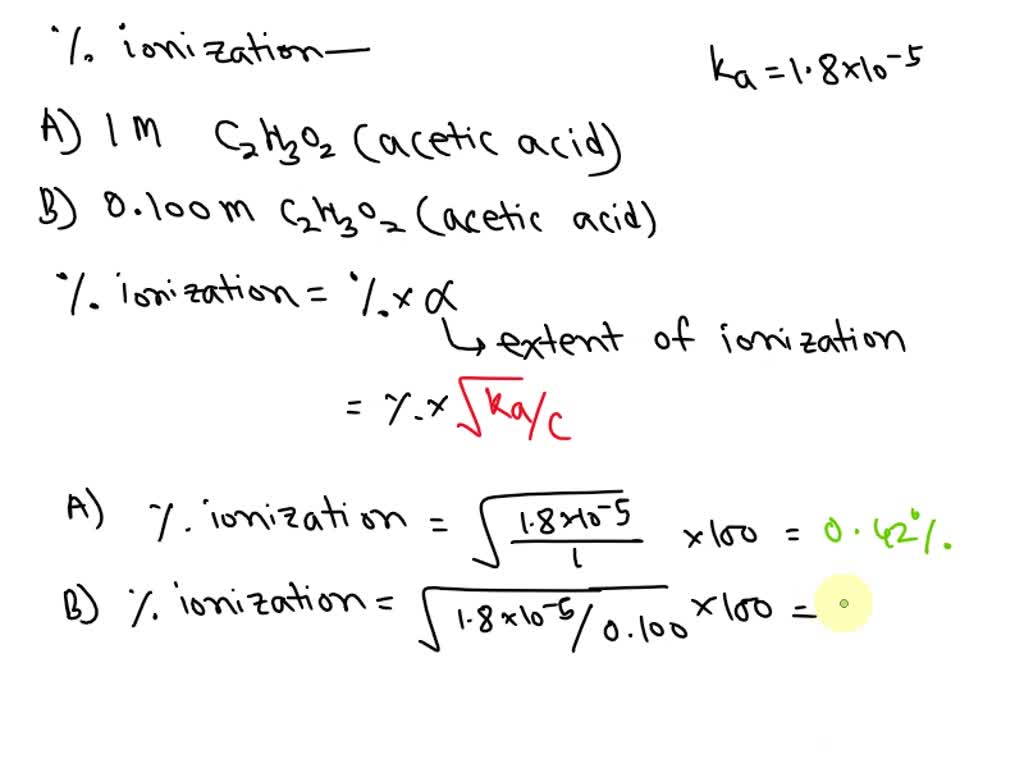 %. ionization—
ka = 1.8×10⁻⁵
A) 1 M C₂H₃O₂ (acetic acid)
B) 0.100 m C₂H₃O₂ (acetic acid)
%. ionization = %. × α
↳ extent of ionization
= %. × √ka/c
A) %. ionization = √1.8×10⁻⁵/1 ×100 = 0.42%.
B) %. ionization = √1.8×10⁻⁵/0.100 ×100 =